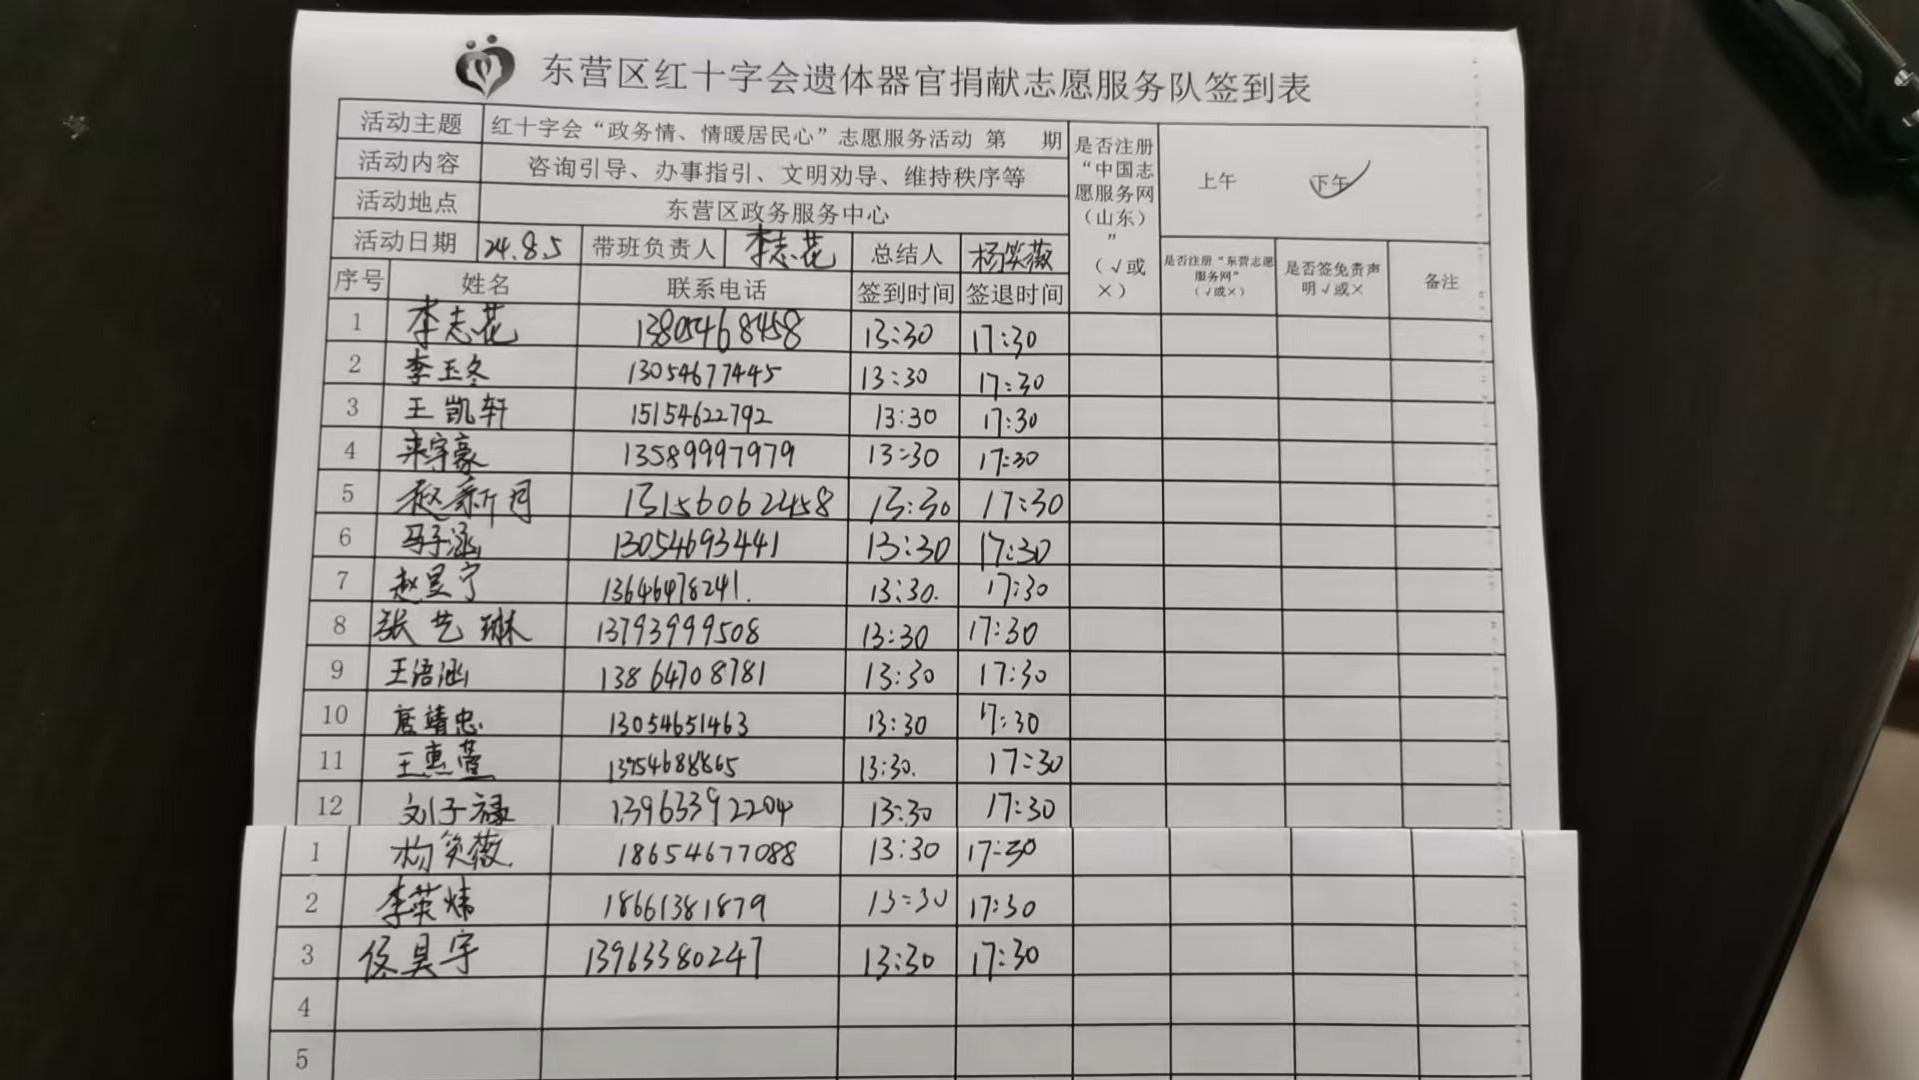 东营区红十字会遗体器官捐献志愿服务队签到表
活动主题 红十字会“政务情、情暖居民心”志愿服务活动 第 期
是否注册“中国志愿服务网（山东）”（√或×）
上午 下午 ✓
活动内容 咨询引导、办事指引、文明劝导、维持秩序等
活动地点 东营区政务服务中心
活动日期 24.8.5 带班负责人 李志花 总结人 杨笑薇
是否注册“东营志愿服务网”（√或×） 是否签免责声明√或× 备注
序号 姓名 联系电话 签到时间 签退时间
1 李志花 13805468458 13:30 17:30
2 李玉冬 13054677445 13:30 17:30
3 王凯轩 15154622792 13:30 17:30
4 宇豪 13589997979 13:30 17:30
5 赵新月 131560622458 13:30 17:30
6 马子涵 13054693441 13:30 17:30
7 赵昱宁 13646478241. 13:30. 17:30
8 张艺琳 13793999508 13:30 17:30
9 王语涵 13864708781 13:30 17:30
10 靖忠 13054651463 13:30 17:30
11 王惠萱 13:30. 17:30
12 刘子禄 13963392204 13:30 17:30
1 杨笑薇 18654677088 13:30 17:30
2 李英炜 18661381879 13:30 17:30
3 侯昊宇 13963380247 13:30 17:30
4
5